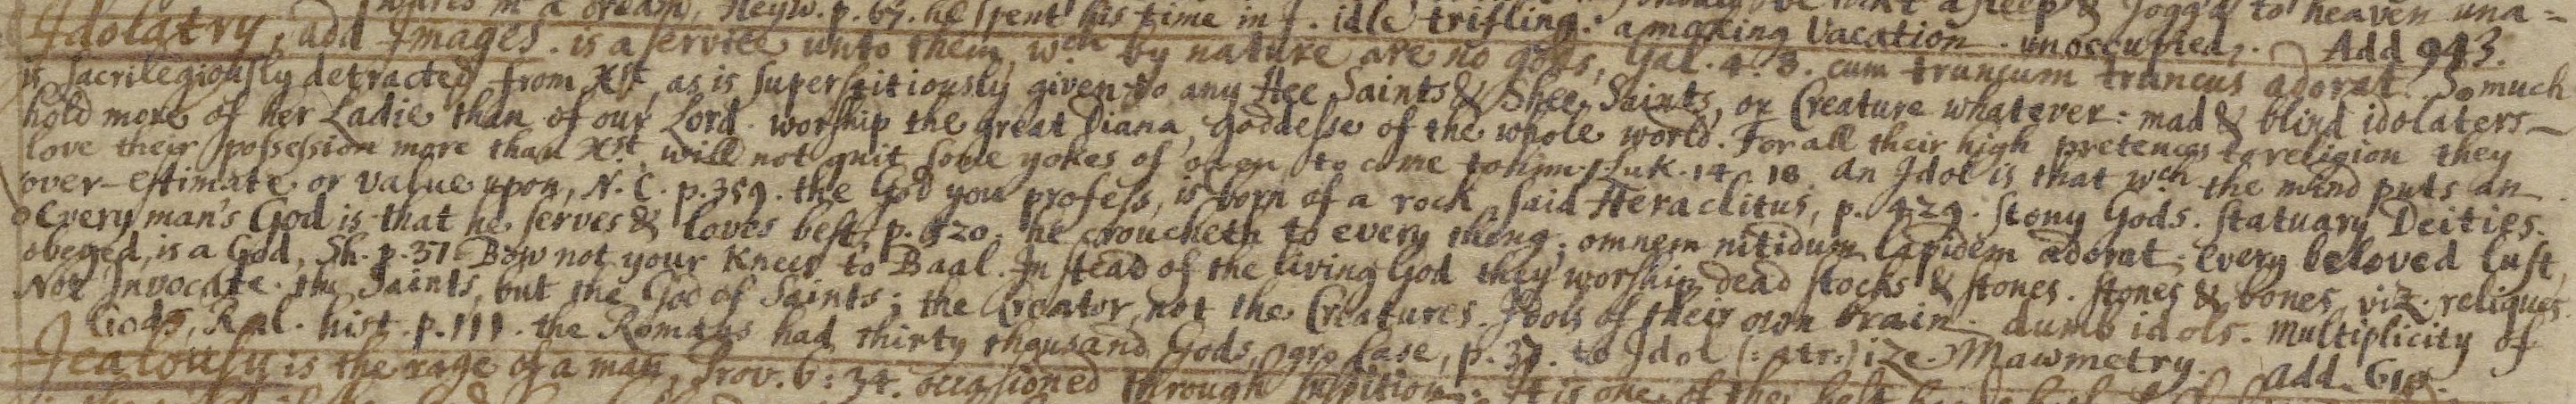 in a dream, Heyw. p. 67. he spent his time in J. idle trifling. a making Vacation. unoccupied. Add 943.
Idolatry, add Images. is a service unto them, wch by nature are no gods, Gal. 4. 8. cum truncum truncus adorat. So much
is sacrilegiously detracted from Xst, as is superstitiously given to any Hee Saints & Shee Saints, or Creature whatever: mad & blind idolaters
hold more of her Ladie than of our Lord. worship the great Diana, goddesse of the whole world. For all their high pretences to religion they
love their possession more than Xst, will not quit some yokes of oxen to come to him, Luk. 14. 18. An Idol is that wch the mind puts an
over-estimate or value upon, N. C. p. 359. the God you profess, is born of a rock, said Heraclitus, p. 429. stony Gods. statuary Deities.
every man's God is that he serves & loves best, p. 520. he croucheth to every thing. omnem nitidum lapidem adorat. every beloved lust,
obeyed, is a God, Sh. p. 37. Bow not your knees to Baal. In stead of the living God they worship dead stocks & stones. stones & bones, viz. reliques.
Not Invocate the Saints, but the God of Saints; the Creator, not the Creatures. Idols of their own brain. dumb idols. multiplicity of
Gods, Ral. hist. p. 111. the Romans had thirty thousand Gods, p. 37. to Idol (:atr:) ize. Mawmetry. add. 
Jealousy is the rage of a man, Prov. 6: 34. occasioned through suspition. It is one of the